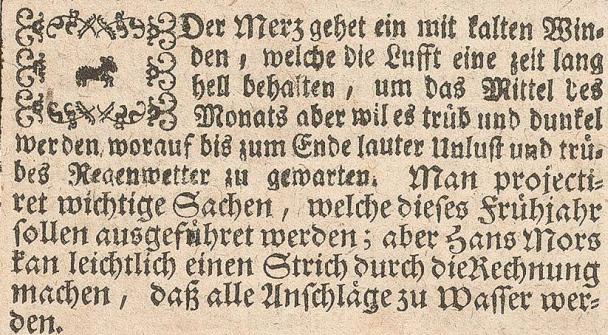 Der Merz gehet ein mit kalten Win-
den, welche die Lufft eine zeit lang
hell behalten, um das Mittel des
Monats aber wil es trüb und dunkel
werden, worauf bis zum Ende lauter Unlust und trü-
bes Regenwetter zu gewarten. Man projecti-
ret wichtige Sachen, welche dieses Frühjahr
sollen ausgeführet werden; aber Hans Mors
kan leichtlich einen Strich durch die Rechnung
machen, daß alle Anschläge zu Wasser wer-
den.